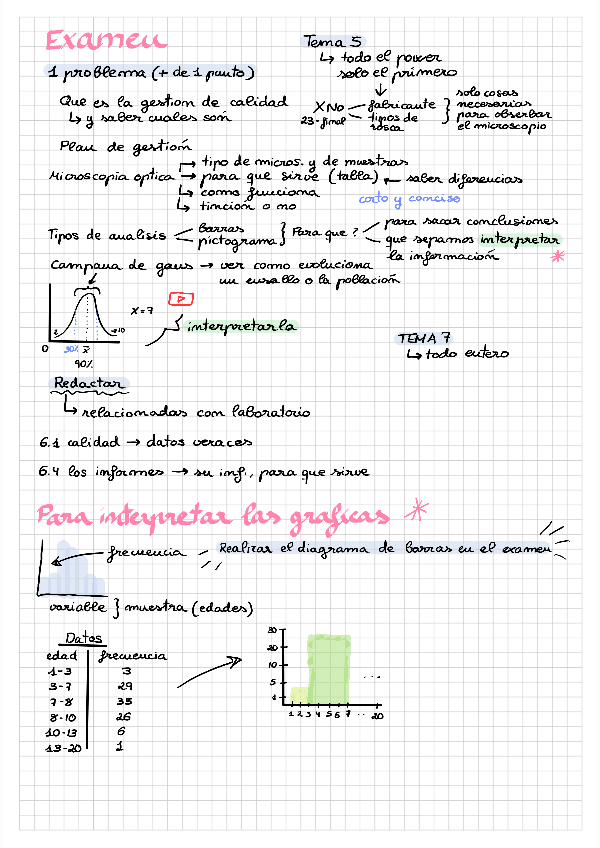 Examen
Tema 5
↳ todo el power
solo el primero
1 problema (+ de 1 punto)
Que es la gestion de calidad
↳ y saber cuales son
XNo
23-final
fabricante
tipos de rosca
solo cosas
necesarias
para obserbar
el microscopio
Plan de gestión
Microscopia optica
→ tipo de micros. y de muestras
→ para que sirve (talla) ← saber diferencias
↳ como funciona
↳ tincion o no
corto y conciso
Tipos de analisis
barras
pictograma
} Para que?
para sacar conclusiones
que sepamos interpretar
la información *
Campana de gaus → ver como evoluciona
un ensallo o la población
X=7
10
0 90% x̄
90%
interpretarla
TEMA 7
↳ todo entero
Redactar
↳ relacionadas con laboratorio
6.1 calidad → datos veraces
6.4 los informes → su inf., para que sirve
Para interpretar las graficas *
frecuencia
Realizar el diagrama de barras en el examen
variable } muestra (edades)
Datos
edad frecuencia
1-3 3
3-7 29
7-8 35
8-10 26
10-13 6
13-20 1
30
20
10
5
1
...
1 2 3 4 5 6 7 .. 20